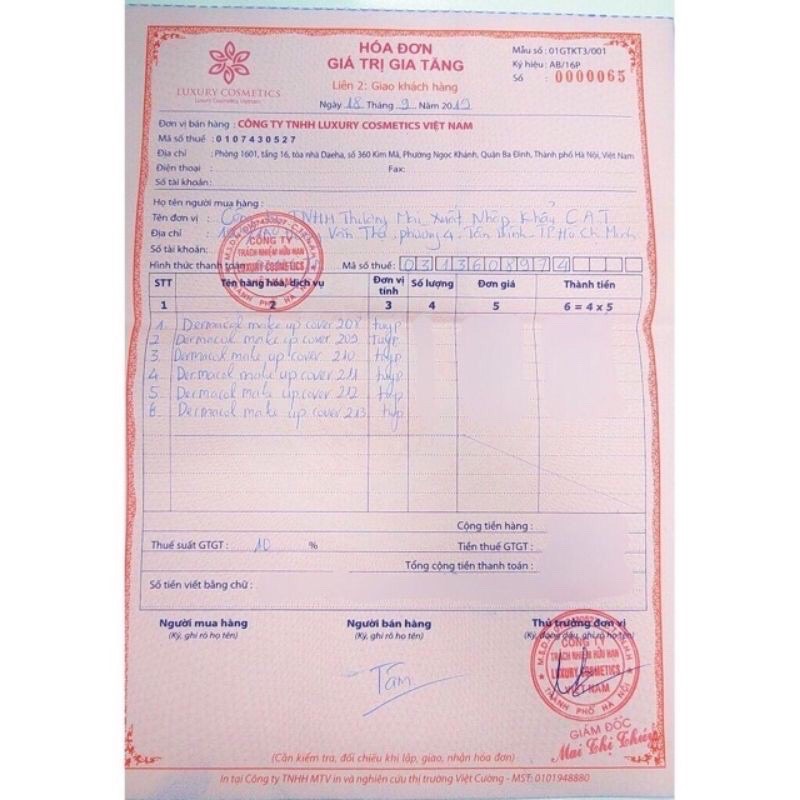 LUXURY COSMETICS
Luxury Cosmetics Vietnam
HÓA ĐƠN
GIÁ TRỊ GIA TĂNG
Liên 2: Giao khách hàng
Ngày 18 Tháng 9 Năm 2019
Mẫu số : 01GTKT3/001
Ký hiệu : AB/16P
Số : 0000065
Đơn vị bán hàng : CÔNG TY TNHH LUXURY COSMETICS VIỆT NAM
Mã số thuế : 0107430527
Địa chỉ : Phòng 1601, tầng 16, tòa nhà Daeha, số 360 Kim Mã, Phường Ngọc Khánh, Quận Ba Đình, Thành phố Hà Nội, Việt Nam
Điện thoại : Fax:
Số tài khoản:
Họ tên người mua hàng :
Tên đơn vị : Công ty TNHH Thương Mại Xuất Nhập Khẩu C.A.T
Địa chỉ : Vĩnh Thọ, phường 4, TP Hồ Chí Minh
Số tài khoản:
Hình thức thanh toán: Mã số thuế: 0313608974
STT Tên hàng hóa, dịch vụ Đơn vị tính Số lượng Đơn giá Thành tiền
1 2 3 4 5 6 = 4 x 5
1 Dermacol make up cover 208 tuýp
2 Dermacol make up cover 209 tuýp
3 Dermacol make up cover 210 tuýp
4 Dermacol make up cover 211 tuýp
5 Dermacol make up cover 212 tuýp
6 Dermacol make up cover 213 tuýp
Cộng tiền hàng :
Thuế suất GTGT : 10 % Tiền thuế GTGT :
Tổng cộng tiền thanh toán :
Số tiền viết bằng chữ :
Người mua hàng Người bán hàng Thủ trưởng đơn vị
(Ký, ghi rõ họ tên) (Ký, ghi rõ họ tên) (Ký, đóng dấu, ghi rõ họ tên)
Tâm
CÔNG TY
TRÁCH NHIỆM HỮU HẠN
LUXURY COSMETICS
VIỆT NAM
THÀNH PHỐ HÀ NỘI
GIÁM ĐỐC
Mai Thị Thúy
(Cần kiểm tra, đối chiếu khi lập, giao, nhận hóa đơn)
In tại Công ty TNHH MTV in và nghiên cứu thị trường Việt Cường - MST: 0101948880